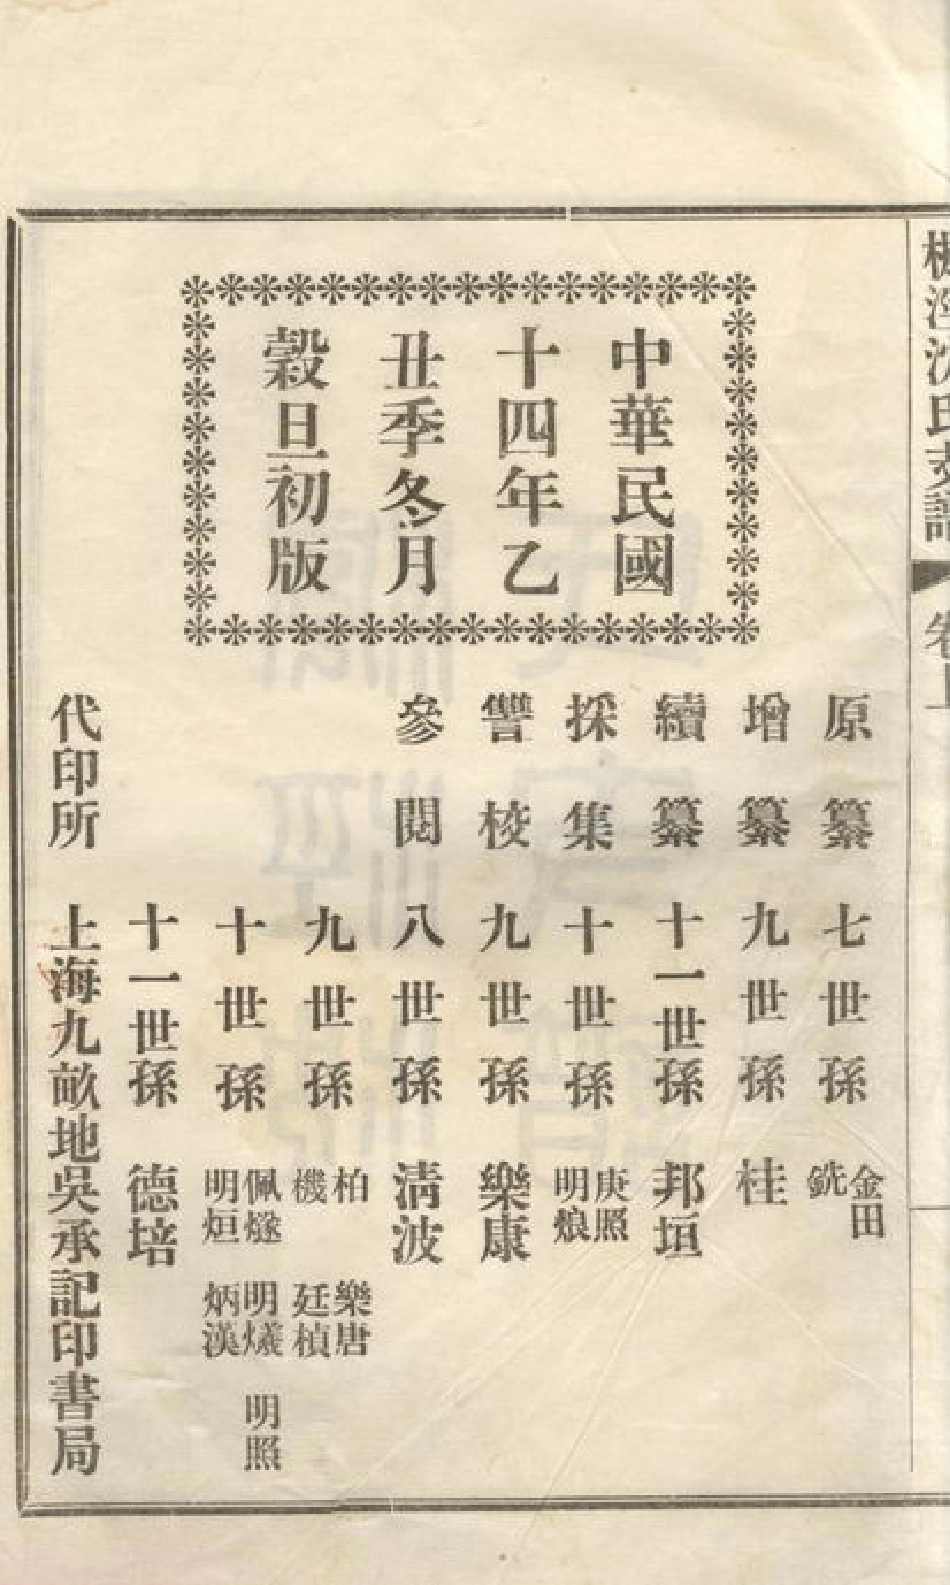 中華民國
十四年乙
丑季冬月
穀旦初版
原纂 七世孫 金田 銑
增纂 九世孫 桂
續纂 十一世孫 邦垣
採集 十世孫 庚照 明烺
讐校 九世孫 樂康
參閱 八世孫 清波
九世孫 柏 樂唐 機 廷楨
十世孫 佩燧 明爔 明照 明烜 炳漢
十一世孫 德培
代印所 上海九畝地吳承記印書局